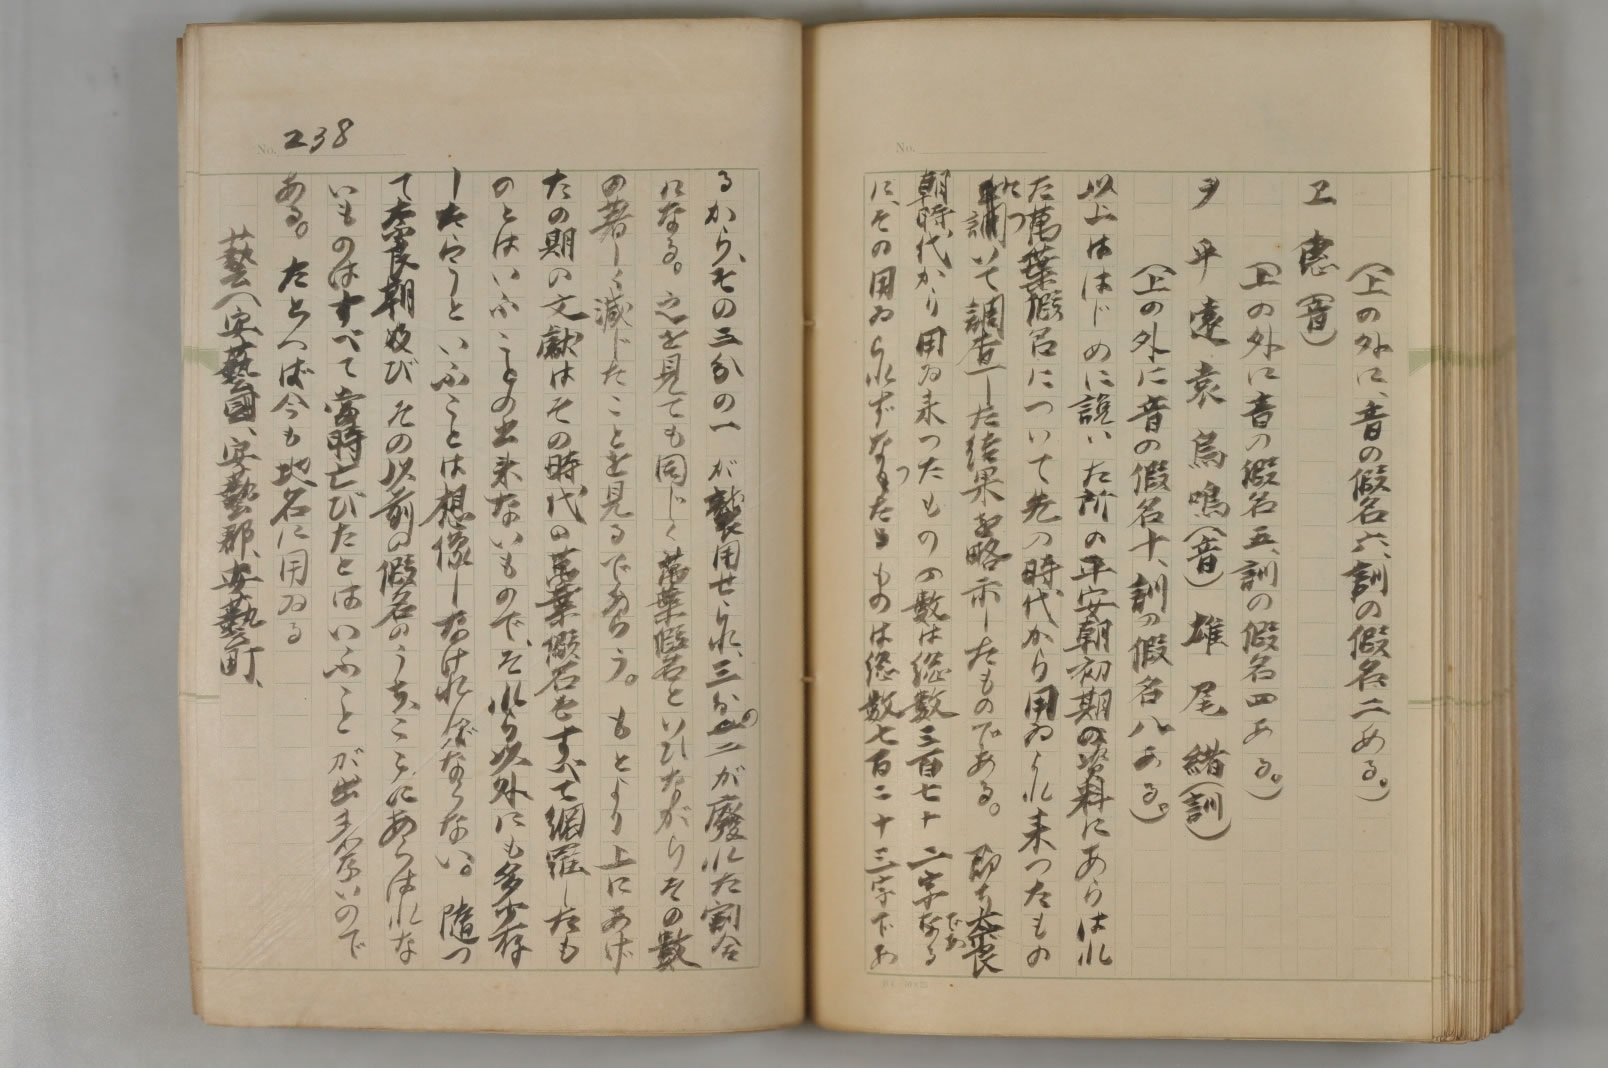 （上の外に、音の假名六、訓の假名二ある。）
ヱ　惠（音）
（上の外に音の假名五、訓の假名四ある。）
ヲ　乎　遠　袁　烏　嗚（音）雄　尾　緒（訓）
（上の外に音の假名十、訓の假名八ある。）
以上ははじめに説いた所の平安朝初期の資料にあらはれ
た萬葉假名について先の時代から用ゐられ来つたもの
につ
いて調査した結果を略示したものである。即ち奈良
朝時代から用ゐ来つたものの數は總數三百七十二字である
に、その用ゐられずなつたものは總數七百二十三字であ
No.
No. 238
るから、その三分の一が襲用せられ、三分の二が廢れた割合
になる。之を見ても同じく萬葉假名といひながらその數
の著しく減じたことを見るであらう。もとより上にあげ
たの期の文獻はその時代の萬葉假名をすべて網羅したも
のとはいふことの出来ないもので、それら以外にも多少存
したらうといふことは想像しなければならない。隨つ
て奈良朝及びその以前の假名のうち、ここにあらはれな
いものはすべて當時亡びたとはいふことが出来ないので
ある。たとへば今も地名に用ゐる
藝（安藝國、安藝郡、安藝町、